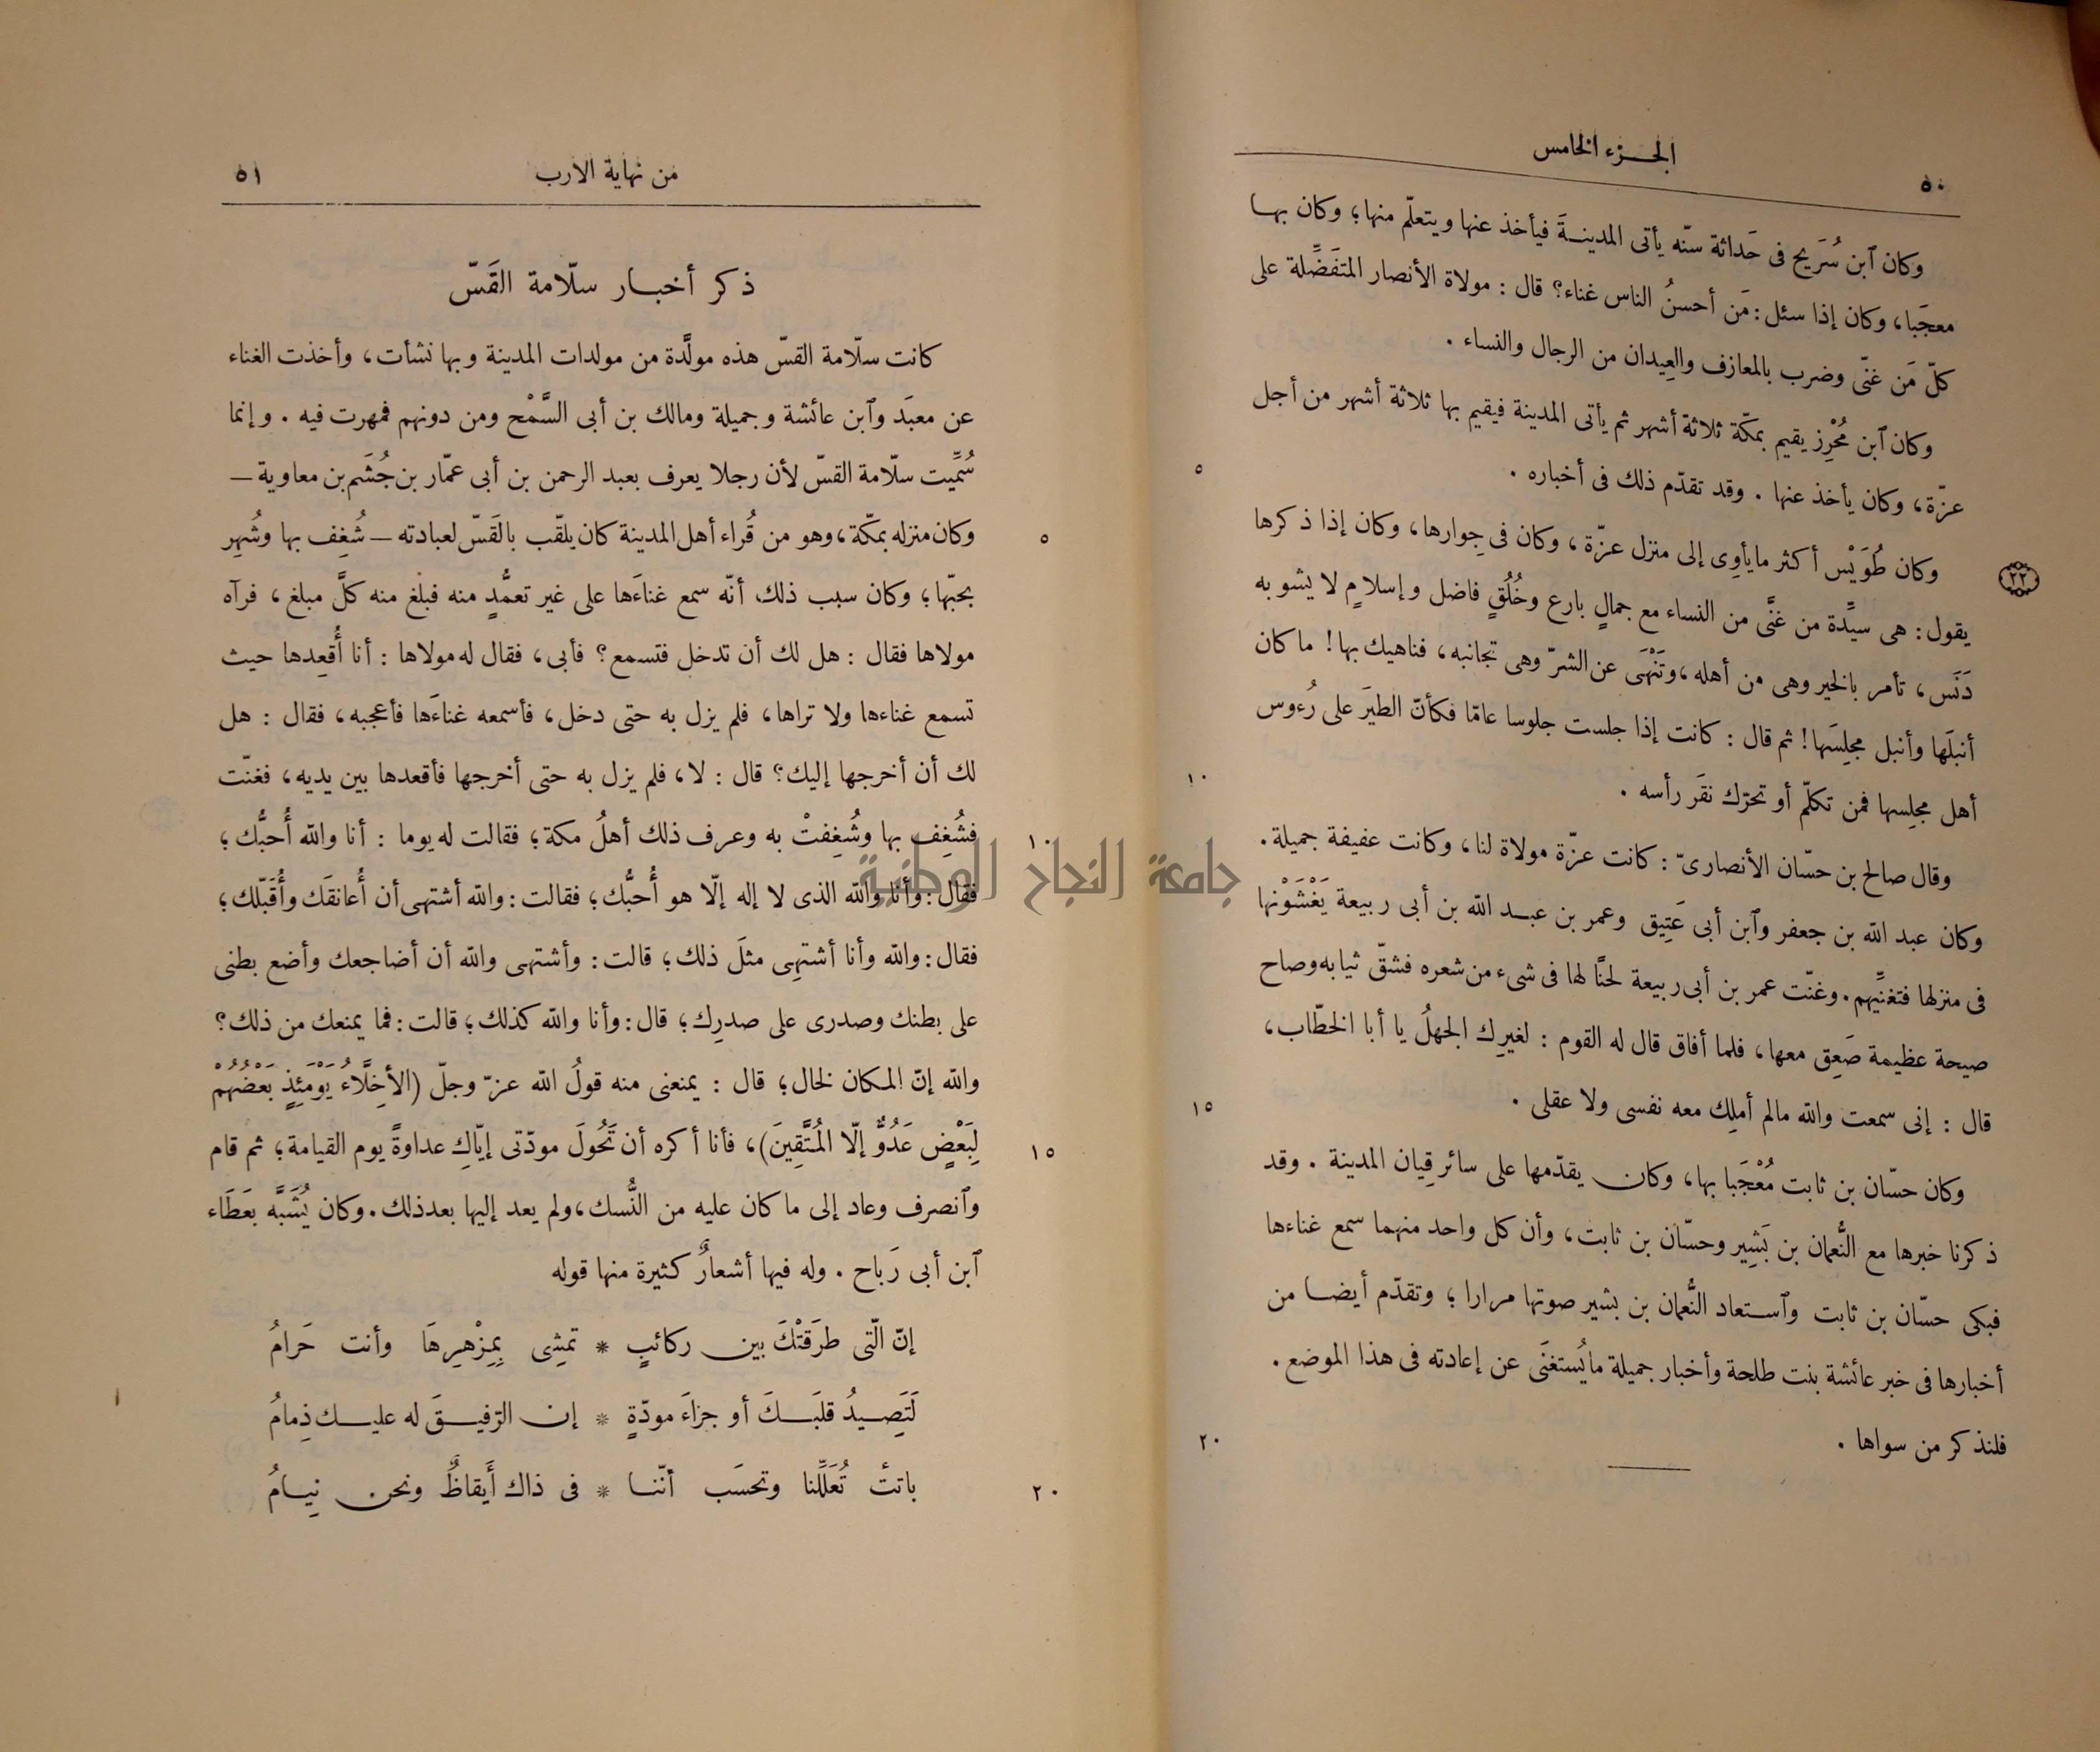 الجزء الخامس
٥٠
وكان ٱبن سُرَيج فى حَداثة سنّه يأتى المدينةَ فيأخذ عنها ويتعلّم منها؛ وكان بها
معجَبا، وكان إذا سئل: مَن أحسنُ الناس غناء؟ قال: مولاة الأنصار المتفَضِّلة على
كلّ مَن غنّى وضرب بالمعازف والعِيدان من الرجال والنساء.
وكان ٱبن مُحْرِز يقيم بمكّة ثلاثة أشهر ثم يأتى المدينة فيقيم بها ثلاثة أشهر من أجل
٥
عزّة، وكان يأخذ عنها. وقد تقدّم ذلك فى أخباره.
وكان طُوَيْس أكثر ما يأوِى إلى منزل عزّة، وكان فى جِوارها، وكان إذا ذكرها
٢٢
يقول: هى سيِّدة من غنَّى من النساء مع جمالٍ بارع وخُلُقٍ فاضل وإسلامٍ لا يشوبه
دَنَس، تأمر بالخير وهى من أهله، وتَنْهَى عن الشرّ وهى تجانبه، فناهيك بها! ما كان
أنبلَها وأنبل مجلِسَها! ثم قال: كانت إذا جلست جلوسا عامّا فكأنّ الطيرَ على رُءوس
١٠
أهل مجلِسها فمن تكلّم أو تحرّك نقَر رأسه.
وقال صالح بن حسّان الأنصارىّ: كانت عزّة مولاة لنا، وكانت عفيفة جميلة.
وكان عبد الله بن جعفر وٱبن أبى عَتِيق وعمر بن عبد الله بن أبى ربيعة يَغْشَوْنها
فى منزلها فتغنِّيهم. وغنّت عمر بن أبى ربيعة لحنًا لها فى شىء من شعره فشقّ ثيابه وصاح
صيحة عظيمة صَعِق معها، فلما أفاق قال له القوم: لغيرِك الجهلُ يا أبا الخطّاب،
١٥
قال: إنى سمعت والله مالم أملِك معه نفسى ولا عقلى.
وكان حسّان بن ثابت مُعْجَبا بها، وكان يقدّمها على سائر قِيان المدينة. وقد
ذكرنا خبرها مع النُّعمان بن بَشِير وحسّان بن ثابت، وأن كل واحد منهما سمع غناءها
فبكى حسّان بن ثابت وٱستعاد النُّعمان بن بشير صوتها مرارا؛ وتقدّم أيضا من
أخبارها فى خبر عائشة بنت طلحة وأخبار جميلة ما يُستغنَى عن إعادته فى هذا الموضع.
٢٠
فلنذكر من سواها.
من نهاية الأرب
٥١
ذكر أخبار سلّامة القَسّ
كانت سلّامة القسّ هذه مولَّدة من مولدات المدينة وبها نشأت، وأخذت الغناء
عن معبَد وٱبن عائشة وجميلة ومالك بن أبى السَّمْح ومن دونهم فمهرت فيه. وإنما
سُمِّيت سلّامة القسّ لأن رجلا يعرف بعبد الرحمن بن أبى عمّار بن جُشَم بن معاوية —
٥
وكان منزله بمكّة، وهو من قُراء أهل المدينة كان يلقّب بالقَسّ لعبادته — شُغِف بها وشُهِر
بحبّها؛ وكان سبب ذلك أنّه سمع غناءَها على غير تعمُّدٍ منه فبلغ منه كلَّ مبلغ، فرآه
مولاها فقال: هل لك أن تدخل فتسمع؟ فأبى، فقال له مولاها: أنا أُقعِدها حيث
تسمع غناءها ولا تراها، فلم يزل به حتى دخل، فأسمعه غناءَها فأعجبه، فقال: هل
لك أن أخرجها إليك؟ قال: لا، فلم يزل به حتى أخرجها فأقعدها بين يديه، فغنّت
١٠
فشُغِف بها وشُغِفتْ به وعرف ذلك أهلُ مكة؛ فقالت له يوما: أنا والله أُحبُّك؛
فقال: وأنا والله الذى لا إله إلّا هو أُحبُّك؛ فقالت: والله أشتهى أن أُعانقَك وأُقَبّلك؛
فقال: والله وأنا أشتهِى مثلَ ذلك؛ قالت: وأشتهى والله أن أضاجعك وأضع بطنى
على بطنك وصدرى على صدرِك؛ قال: وأنا والله كذلك؛ قالت: فما يمنعك من ذلك؟
والله إنّ المكان لخال؛ قال: يمنعنى منه قولُ الله عزّ وجلّ (الأخِلَّاءُ يَوْمَئِذٍ بَعْضُهُمْ
١٥
لِبَعْضٍ عَدُوٌّ إلّا المُتَّقِينَ)، فأنا أكره أن تَحُولَ مودّتى إيّاكِ عداوةً يوم القيامة؛ ثم قام
وٱنصرف وعاد إلى ما كان عليه من النُّسك، ولم يعد إليها بعد ذلك. وكان يُشَبَّه بعَطَاء
ٱبن أبى رَباح. وله فيها أشعارٌ كثيرة منها قوله
إنّ الّتى طرَقتْكَ بين ركائبٍ * تمشِى بِمِزْهرِهَا وأنت حَرامُ
لَتَصِيدُ قلبَكَ أو جزاءَ مودّةٍ * إن الرّفيقَ له عليك ذِمامُ
٢٠
باتتْ تُعَلِّلنا وتحسَب أنّنا * فى ذاك أَيقاظٌ ونحن نِيامُ
جامعة النجاح الوطنية